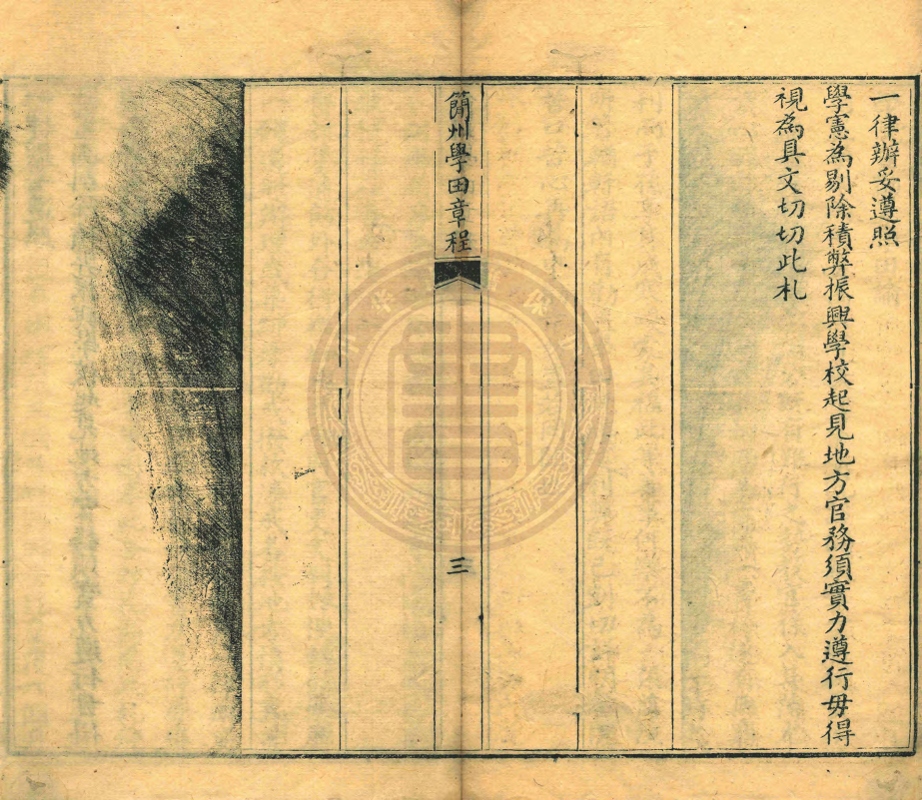 一律辦妥遵照
學憲為剔除積弊振興學校起見地方官務須實力遵行毋得
視為具文切切此札
簡州學田章程
三